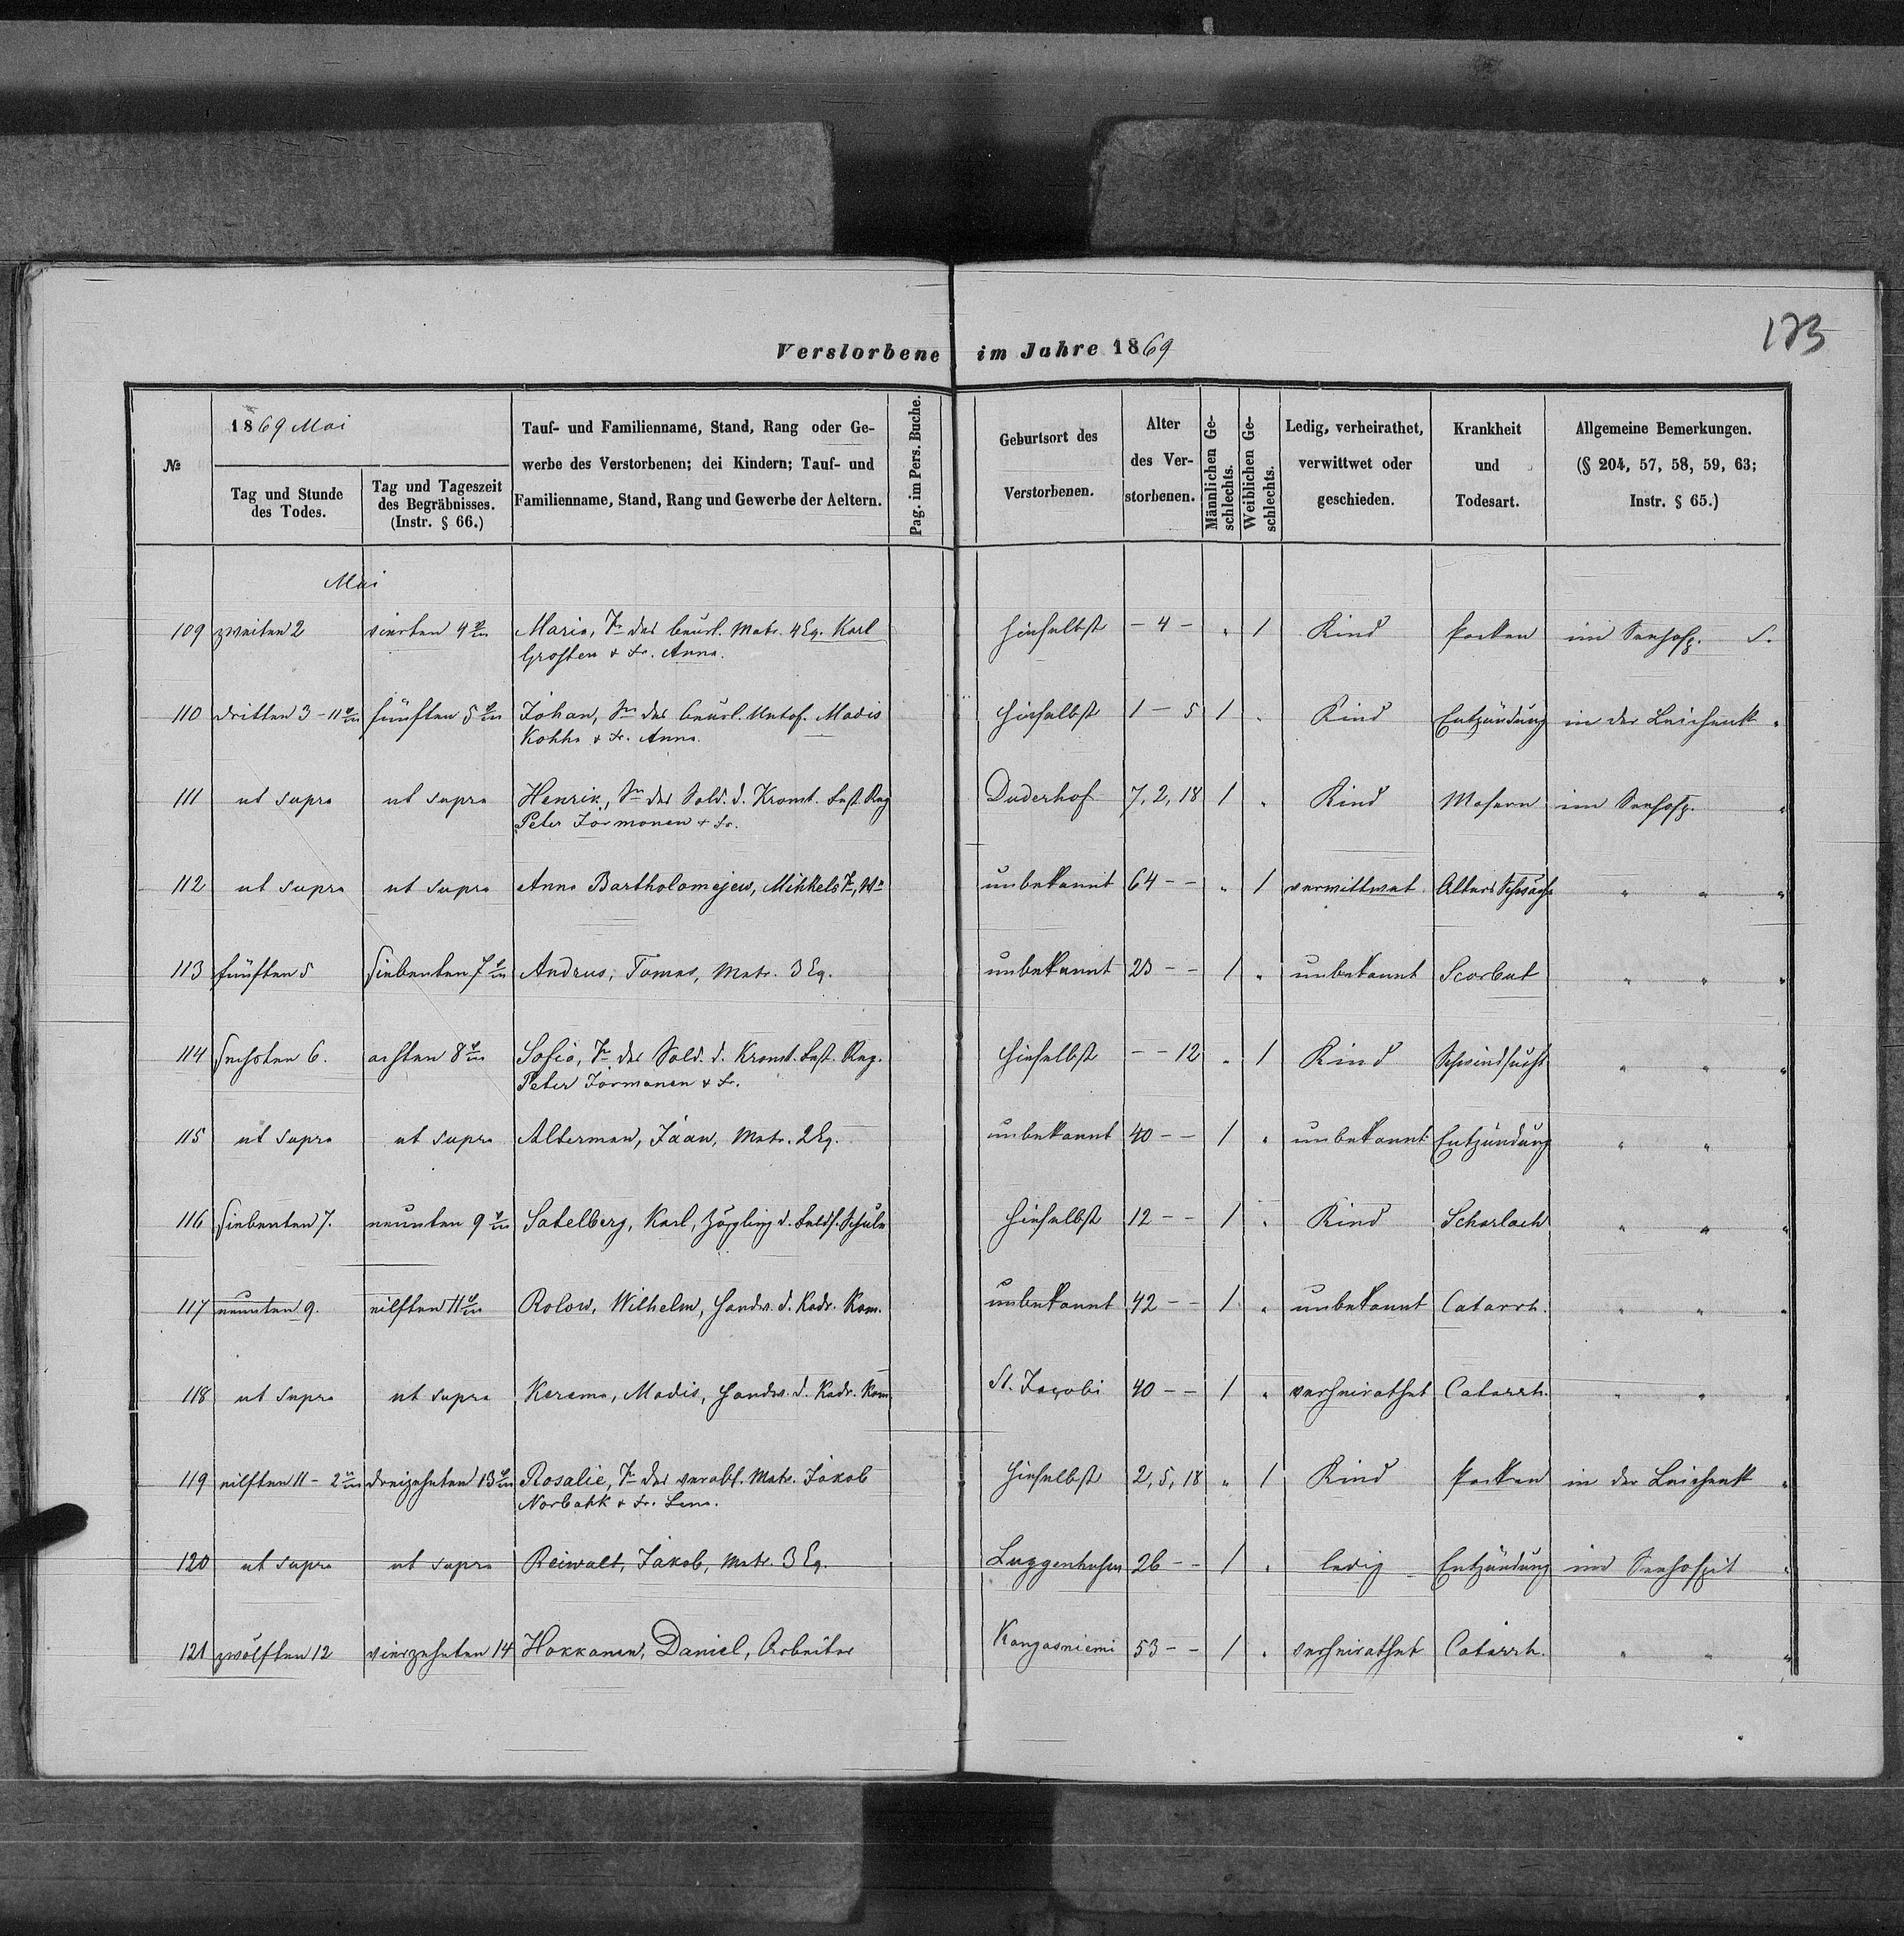 173
Verstorbene im Jahre 1869
№
1869 Mai
Tag und Stunde des Todes.
Tag und Tageszeit des Begräbnisses. (Instr. § 66.)
Tauf- und Familienname, Stand, Rang oder Gewerbe des Verstorbenen; dei Kindern; Tauf- und Familienname, Stand, Rang und Gewerbe der Aeltern.
Pag. im Pers. Buche.
Geburtsort des Verstorbenen.
Alter des Verstorbenen.
Männlichen Geschlechts.
Weiblichen Geschlechts.
Ledig, verheirathet, verwittwet oder geschieden.
Krankheit und Todesart.
Allgemeine Bemerkungen. (§ 204, 57, 58, 59, 63; Instr. § 65.)
Mai
109 zweiten 2 vierten 4 Maria, Tr. des beurl. Matr. 4 Eq. Karl hieselbst – 4 – „ 1 Kind Pocken im Seehosp. S.
Grossten & Fr. Anna.
110 dritten 3 – 11 fünften 5 Johan, Sn des beurl. Untof. Madis hieselbst 1 – 5 1 „ Kind Entzündung in der Leichenk. „
Kohha & Fr. Anna.
111 ut supra ut supra Henrik, Sn des Sold. d. Kronst. Fest. Reg Duderhof 7, 2, 18 1 „ Kind Masern im Seehosp. „
Peter Jormonen & Fr.
112 ut supra ut supra Anna Bartholomejew, Mihkels Tr, We unbekannt 64 – – „ 1 verwittwet Altersschwäche „ „ „
113 fünften 5 siebenten 7 Andrus, Tomas, Matr. 3 Eq. unbekannt 23 – – 1 „ unbekannt Scorbut „ „ „
114 sechsten 6. achten 8 Sofia, Tr des Sold. d. Kronst. Fest. Reg. hieselbst – – 12 „ 1 Kind Schwindsucht „ „ „
Peter Jormanen & Fr.
115 ut supra ut supra Alterman, Jaan, Matr. 2 Eq. unbekannt 40 – – 1 „ unbekannt Entzündung „ „
116 siebenten 7. neunten 9 Satelberg, Karl, Zögling d. Feldsch. Schule hieselbst 12 – – 1 „ Kind Scharlach „ „ „
117 neunten 9. eilften 11 Rolow, Wilhelm, Handw. d. Kadr. Kom. unbekannt 42 – – 1 „ unbekannt Catarrh. „ „ „
118 ut supra ut supra Kerema, Madis, Handw. d. Kadr. Kom. St. Jacobi 40 – – 1 „ verheirathet Catarrh. „ „ „
119 eilften 11 – 2 dreizehnten 13 Rosalie, Tr des verabs. Matr. Jakob hieselbst 2, 5, 18 „ 1 Kind Pocken in der Leichenk „
Norbahk & Fr. Lena.
120 ut supra ut supra Reiwalt, Jakob, Matr. 3 Eq. Luggenhusen 26 – – 1 „ ledig Entzündung im Seehospit „
121 zwölften 12 vierzehnten 14 Hokkanen, Daniel, Arbeiter Kangasniemi 53 – – 1 „ verheirathet Catarrh. „ „ „